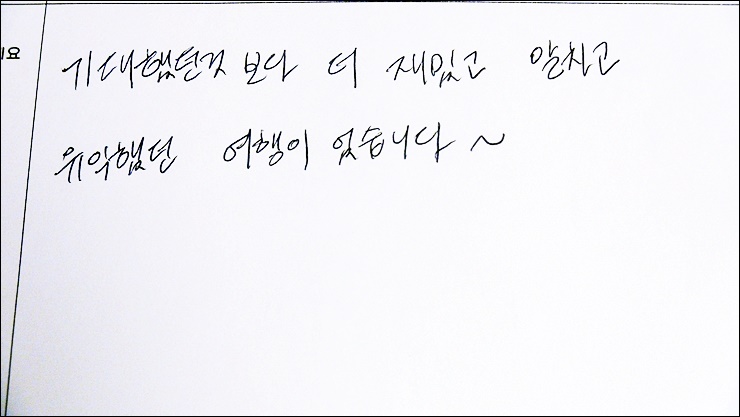 기요
기대했던것 보다 더 재밌고 알차고
유익했던 여행이 었습니다 ~